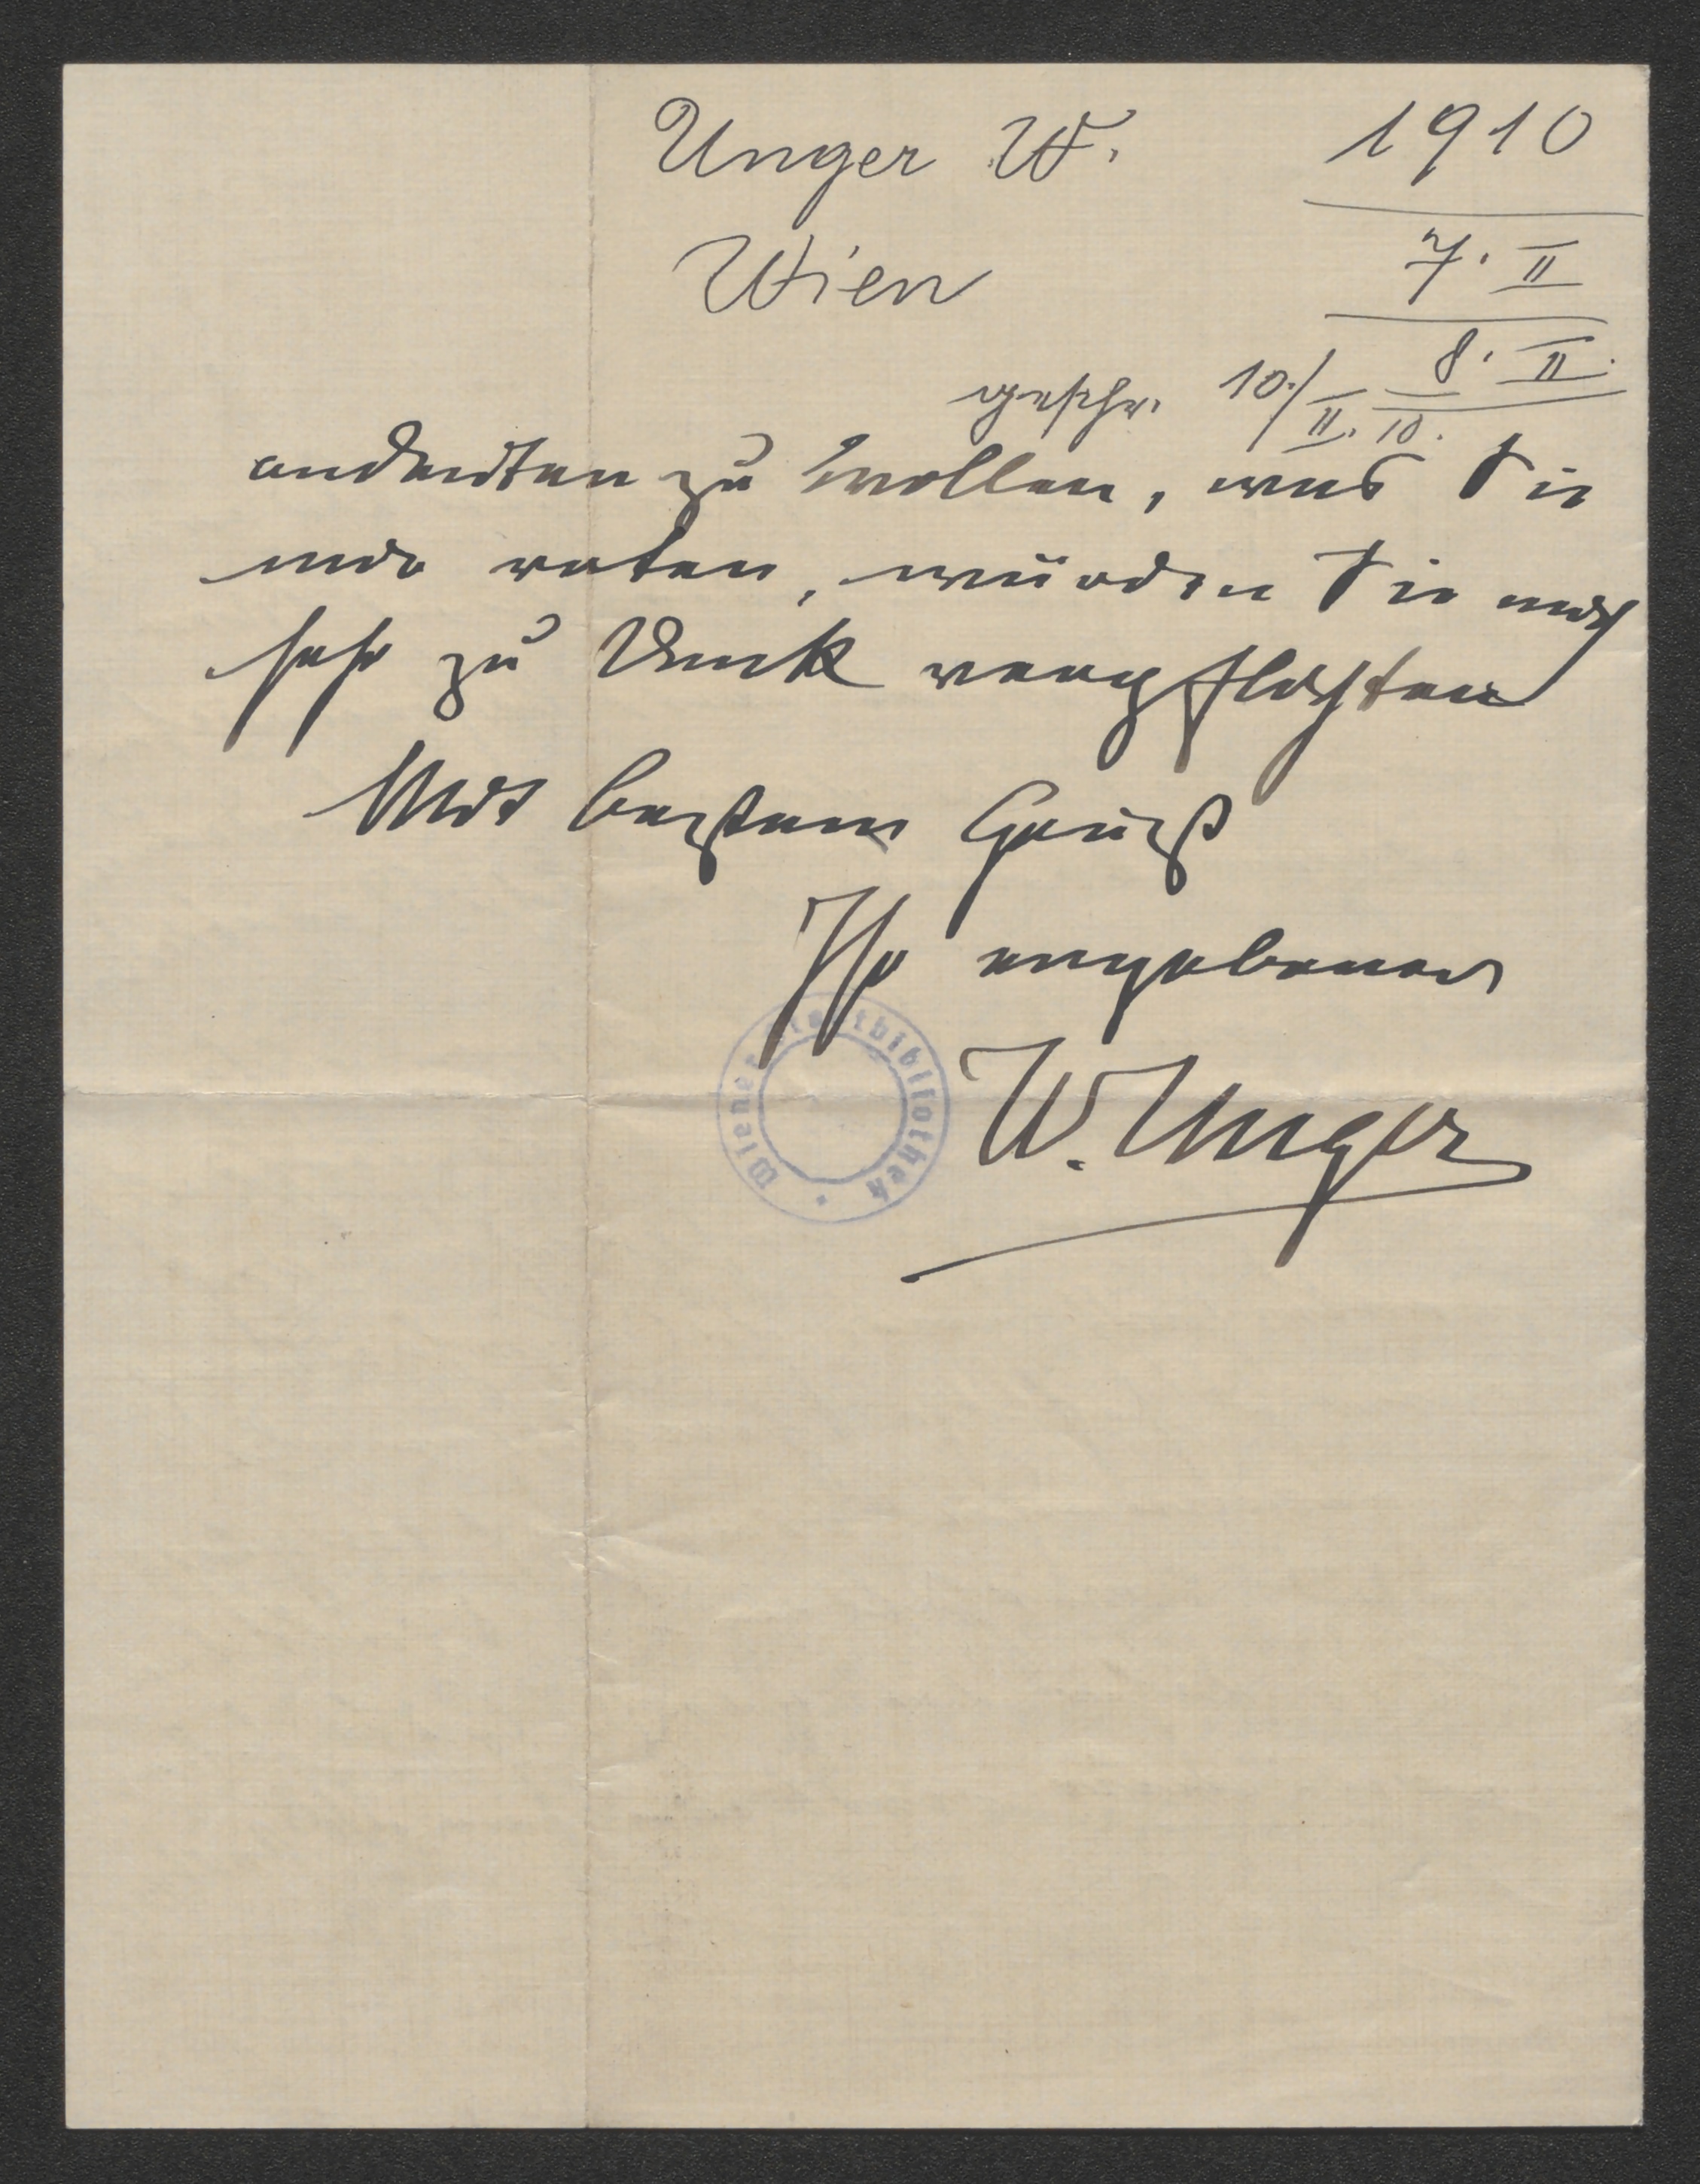 Unger W. 1910
Wien 7. II
8. II.
geschr. 10./II. 10.
andeuten zu wollen, was Sie
mir raten, würden Sie mich
sehr zu Dank verpflichten
Mit bestem Gruß
Ihr ergebener
W. Unger
Wiener Stadtbibliothek